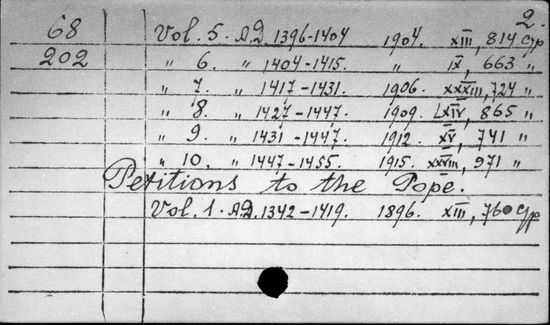 2.
68 Vol. 5. A.D. 1396-1404 1904. XIII, 814 Gp
202 " 6. " 1404-1415. " IX, 663 "
" 7. " 1417-1431. 1906. XXXIII, 724 "
" 8. " 1427-1447. 1909. LXIV, 865 "
" 9. " 1431-1447. 1912. XV, 741 "
" 10. " 1447-1455. 1915. XXVIII, 971 "
Petitions to the Pope.
Vol. 1. A.D. 1342-1419. 1896. XIII, 760 Gp